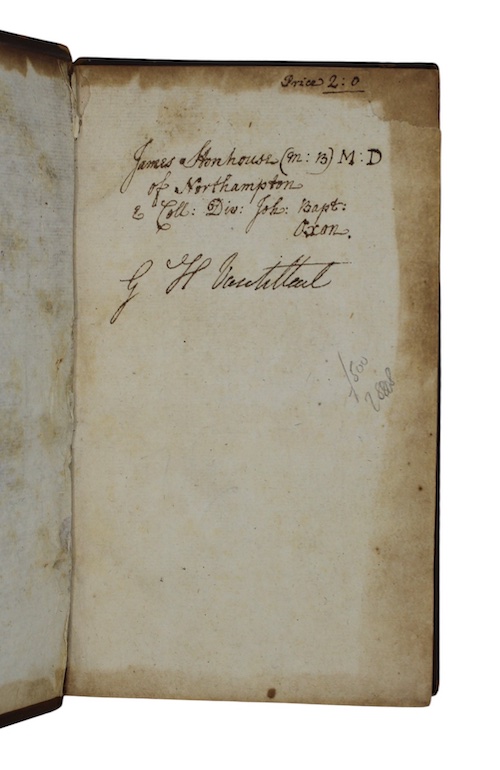 Price 2:0
James Stonhouse (M:B) M:D
of Northampton
e Coll: Div: Joh: Bapt:
Oxon.
G H Vansittart
2888